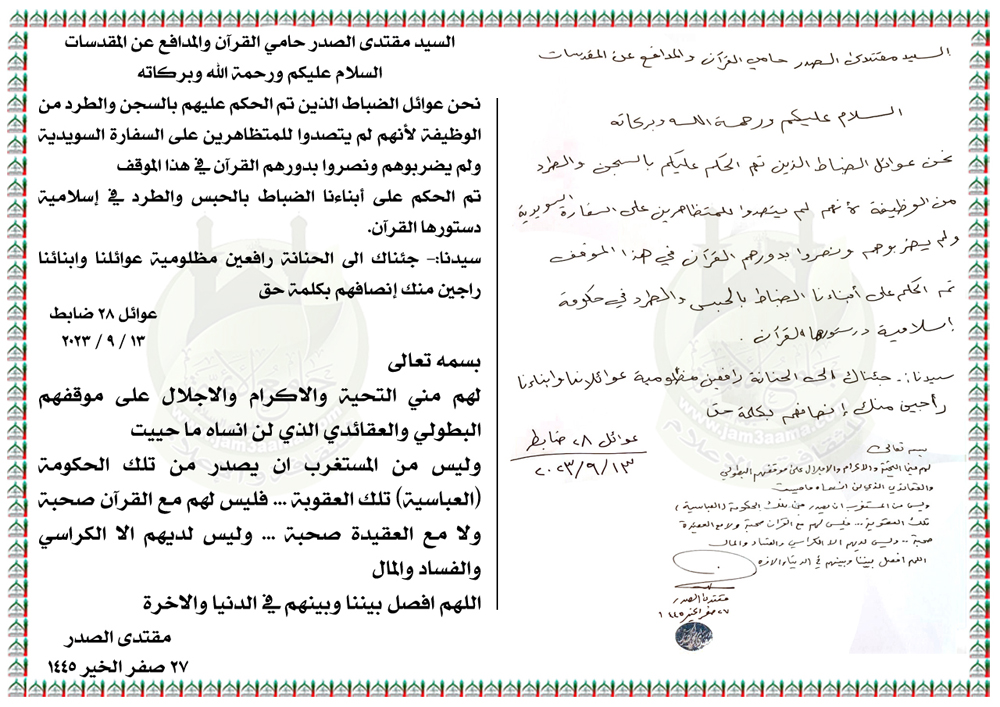 السيد مقتدى الصدر حامي القرآن والمدافع عن المقدسات
السلام عليكم ورحمة الله وبركاته
نحن عوائل الضباط الذين تم الحكم عليكم بالسجن والطرد
من الوظيفة لأنهم لم يتصدوا للمتظاهرين على السفارة السويدية
ولم يضربوهم ونصروا بدورهم القرآن في هذا الموقف
تم الحكم على أبنادنا الضباط بالحبس والطرد في حكومة
إسلامية دستورها القرآن .
سيدنا :. جئناك الى الحنانة رافعين مظلومية عوائلنا وابناءنا
راجين منك إنصافهم بكلمة حق
عوائل ٢٨ ضابط
٢٠٢٣/٩/١٣
بسمه تعالى
لهم مني التحية والاكرام والاجلال على موقفهم البطولي
والعقائدي الذي لن انساه ما حييت
وليس من المستغرب ان يصدر من تلك الحكومة (العباسية)
تلك العقوبة ... فليس لهم مع القرآن صحبة ولا مع العقيدة
صحبة ... وليس لديهم الا الكراسي والفساد والمال
اللهم افصل بيننا وبينهم في الدنيا والاخرة
مقتدى الصدر
٢٧ صفر الخير ١٤٤٥
السيد مقتدى الصدر حامي القرآن والمدافع عن المقدسات
السلام عليكم ورحمة الله وبركاته
نحن عوائل الضباط الذين تم الحكم عليهم بالسجن والطرد من
الوظيفة لأنهم لم يتصدوا للمتظاهرين على السفارة السويدية
ولم يضربوهم ونصروا بدورهم القرآن في هذا الموقف
تم الحكم على أبناءنا الضباط بالحبس والطرد في إسلامية
دستورها القرآن.
سيدنا:- جئناك الى الحنانة رافعين مظلومية عوائلنا وابنائنا
راجين منك إنصافهم بكلمة حق
عوائل ٢٨ ضابط
١٣ / ٩ / ٢٠٢٣
بسمه تعالى
لهم مني التحية والاكرام والاجلال على موقفهم
البطولي والعقائدي الذي لن انساه ما حييت
وليس من المستغرب ان يصدر من تلك الحكومة
(العباسية) تلك العقوبة ... فليس لهم مع القرآن صحبة
ولا مع العقيدة صحبة ... وليس لديهم الا الكراسي
والفساد والمال
اللهم افصل بيننا وبينهم في الدنيا والاخرة
مقتدى الصدر
٢٧ صفر الخير ١٤٤٥
www.jam3aama.com